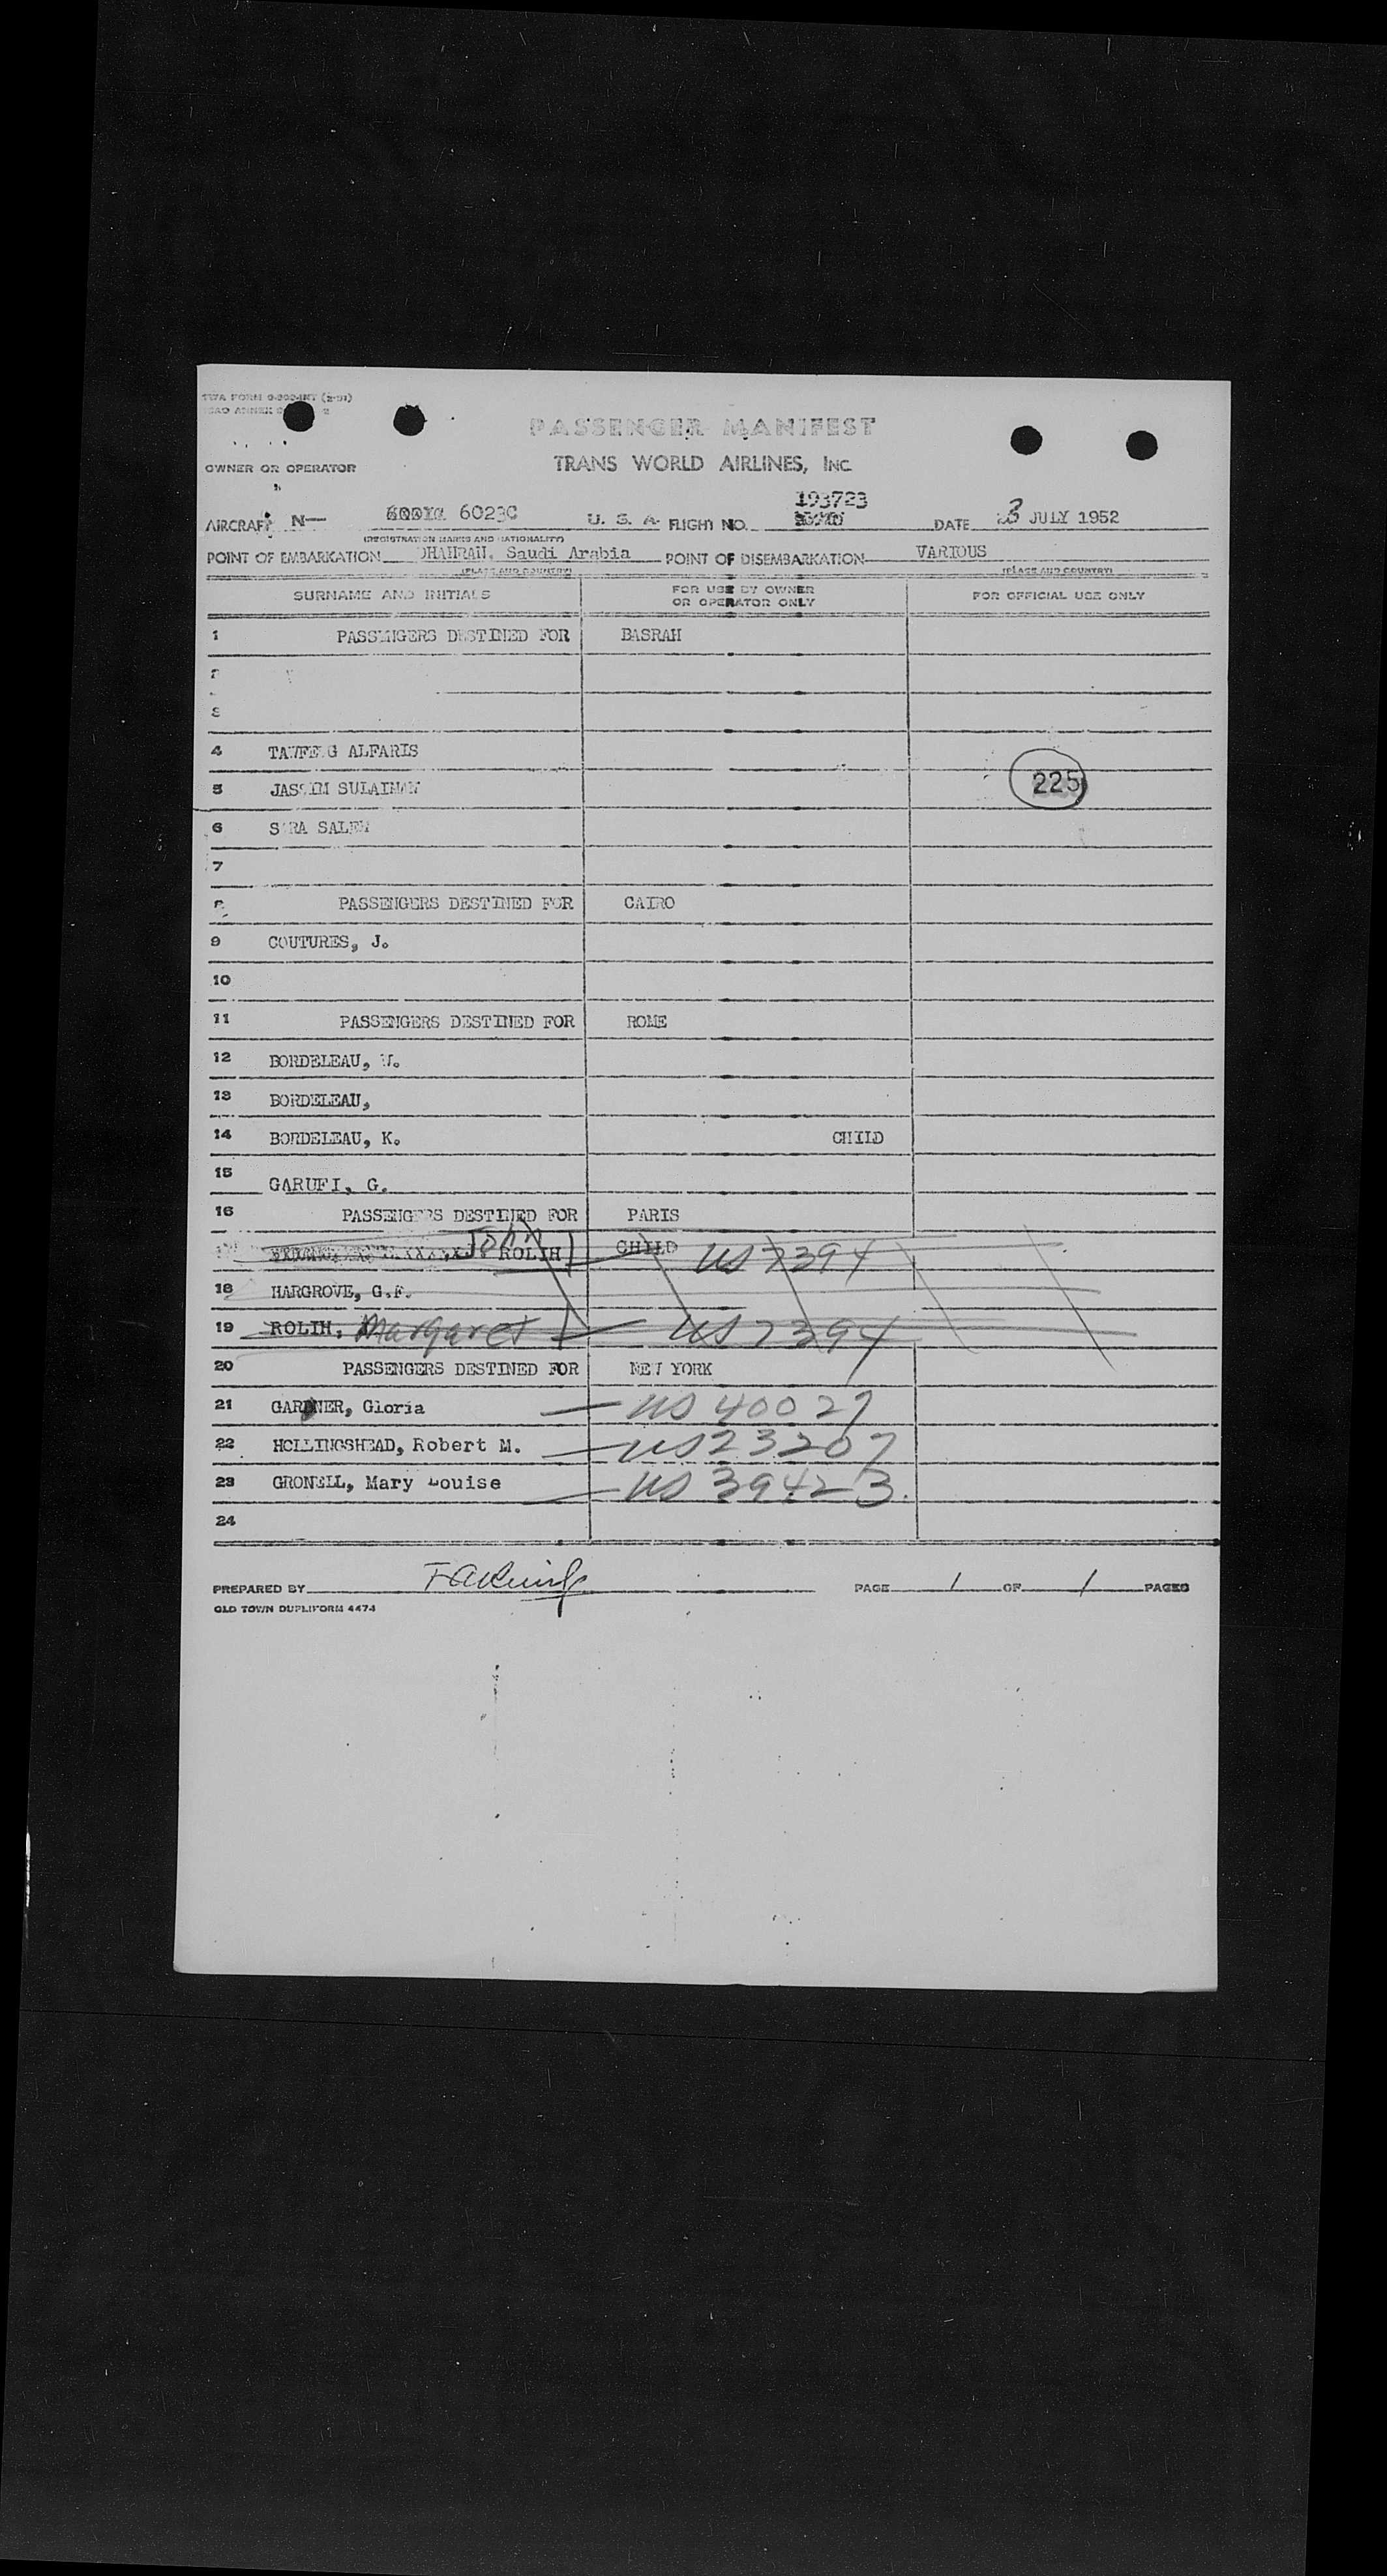 PASSENGER MANIFEST
OWNER OR OPERATOR
TRANS WORLD AIRLINES, INC.
193723
AIRCRAFT N— 6023C U. S. A. FLIGHT NO. DATE 3 JULY 1952
(REGISTRATION MARKS AND NATIONALITY)
POINT OF EMBARKATION DHAHRAN. Saudi Arabia POINT OF DISEMBARKATION VARIOUS
(PLACE AND COUNTRY) (PLACE AND COUNTRY)
SURNAME AND INITIALS FOR USE BY OWNER OR OPERATOR ONLY FOR OFFICIAL USE ONLY
1 PASSENGERS DESTINED FOR BASRAH
2
3
4 ALFARIS
5 JASSIM SULAIMAN 225
6 SALEM
7
8 PASSENGERS DESTINED FOR CAIRO
9 COUTURES, J.
10
11 PASSENGERS DESTINED FOR ROME
12 BORDELEAU,
13 BORDELEAU,
14 BORDELEAU, K. CHILD
15 GARUFI, G.
16 PASSENGERS DESTINED FOR PARIS
John ROLIH CHILD US 7394
18 HARGROVE, G.F.
19 ROLIH, Margaret US 7394
20 PASSENGERS DESTINED FOR NEW YORK
21 GARDNER, Gloria — US 40027
22 HOLLINGSHEAD, Robert M. — US 23207
23 GRONELL, Mary Louise — US 39423.
24
PREPARED BY PAGE 1 OF 1 PAGES
OLD TOWN DUPLIFORM 4474